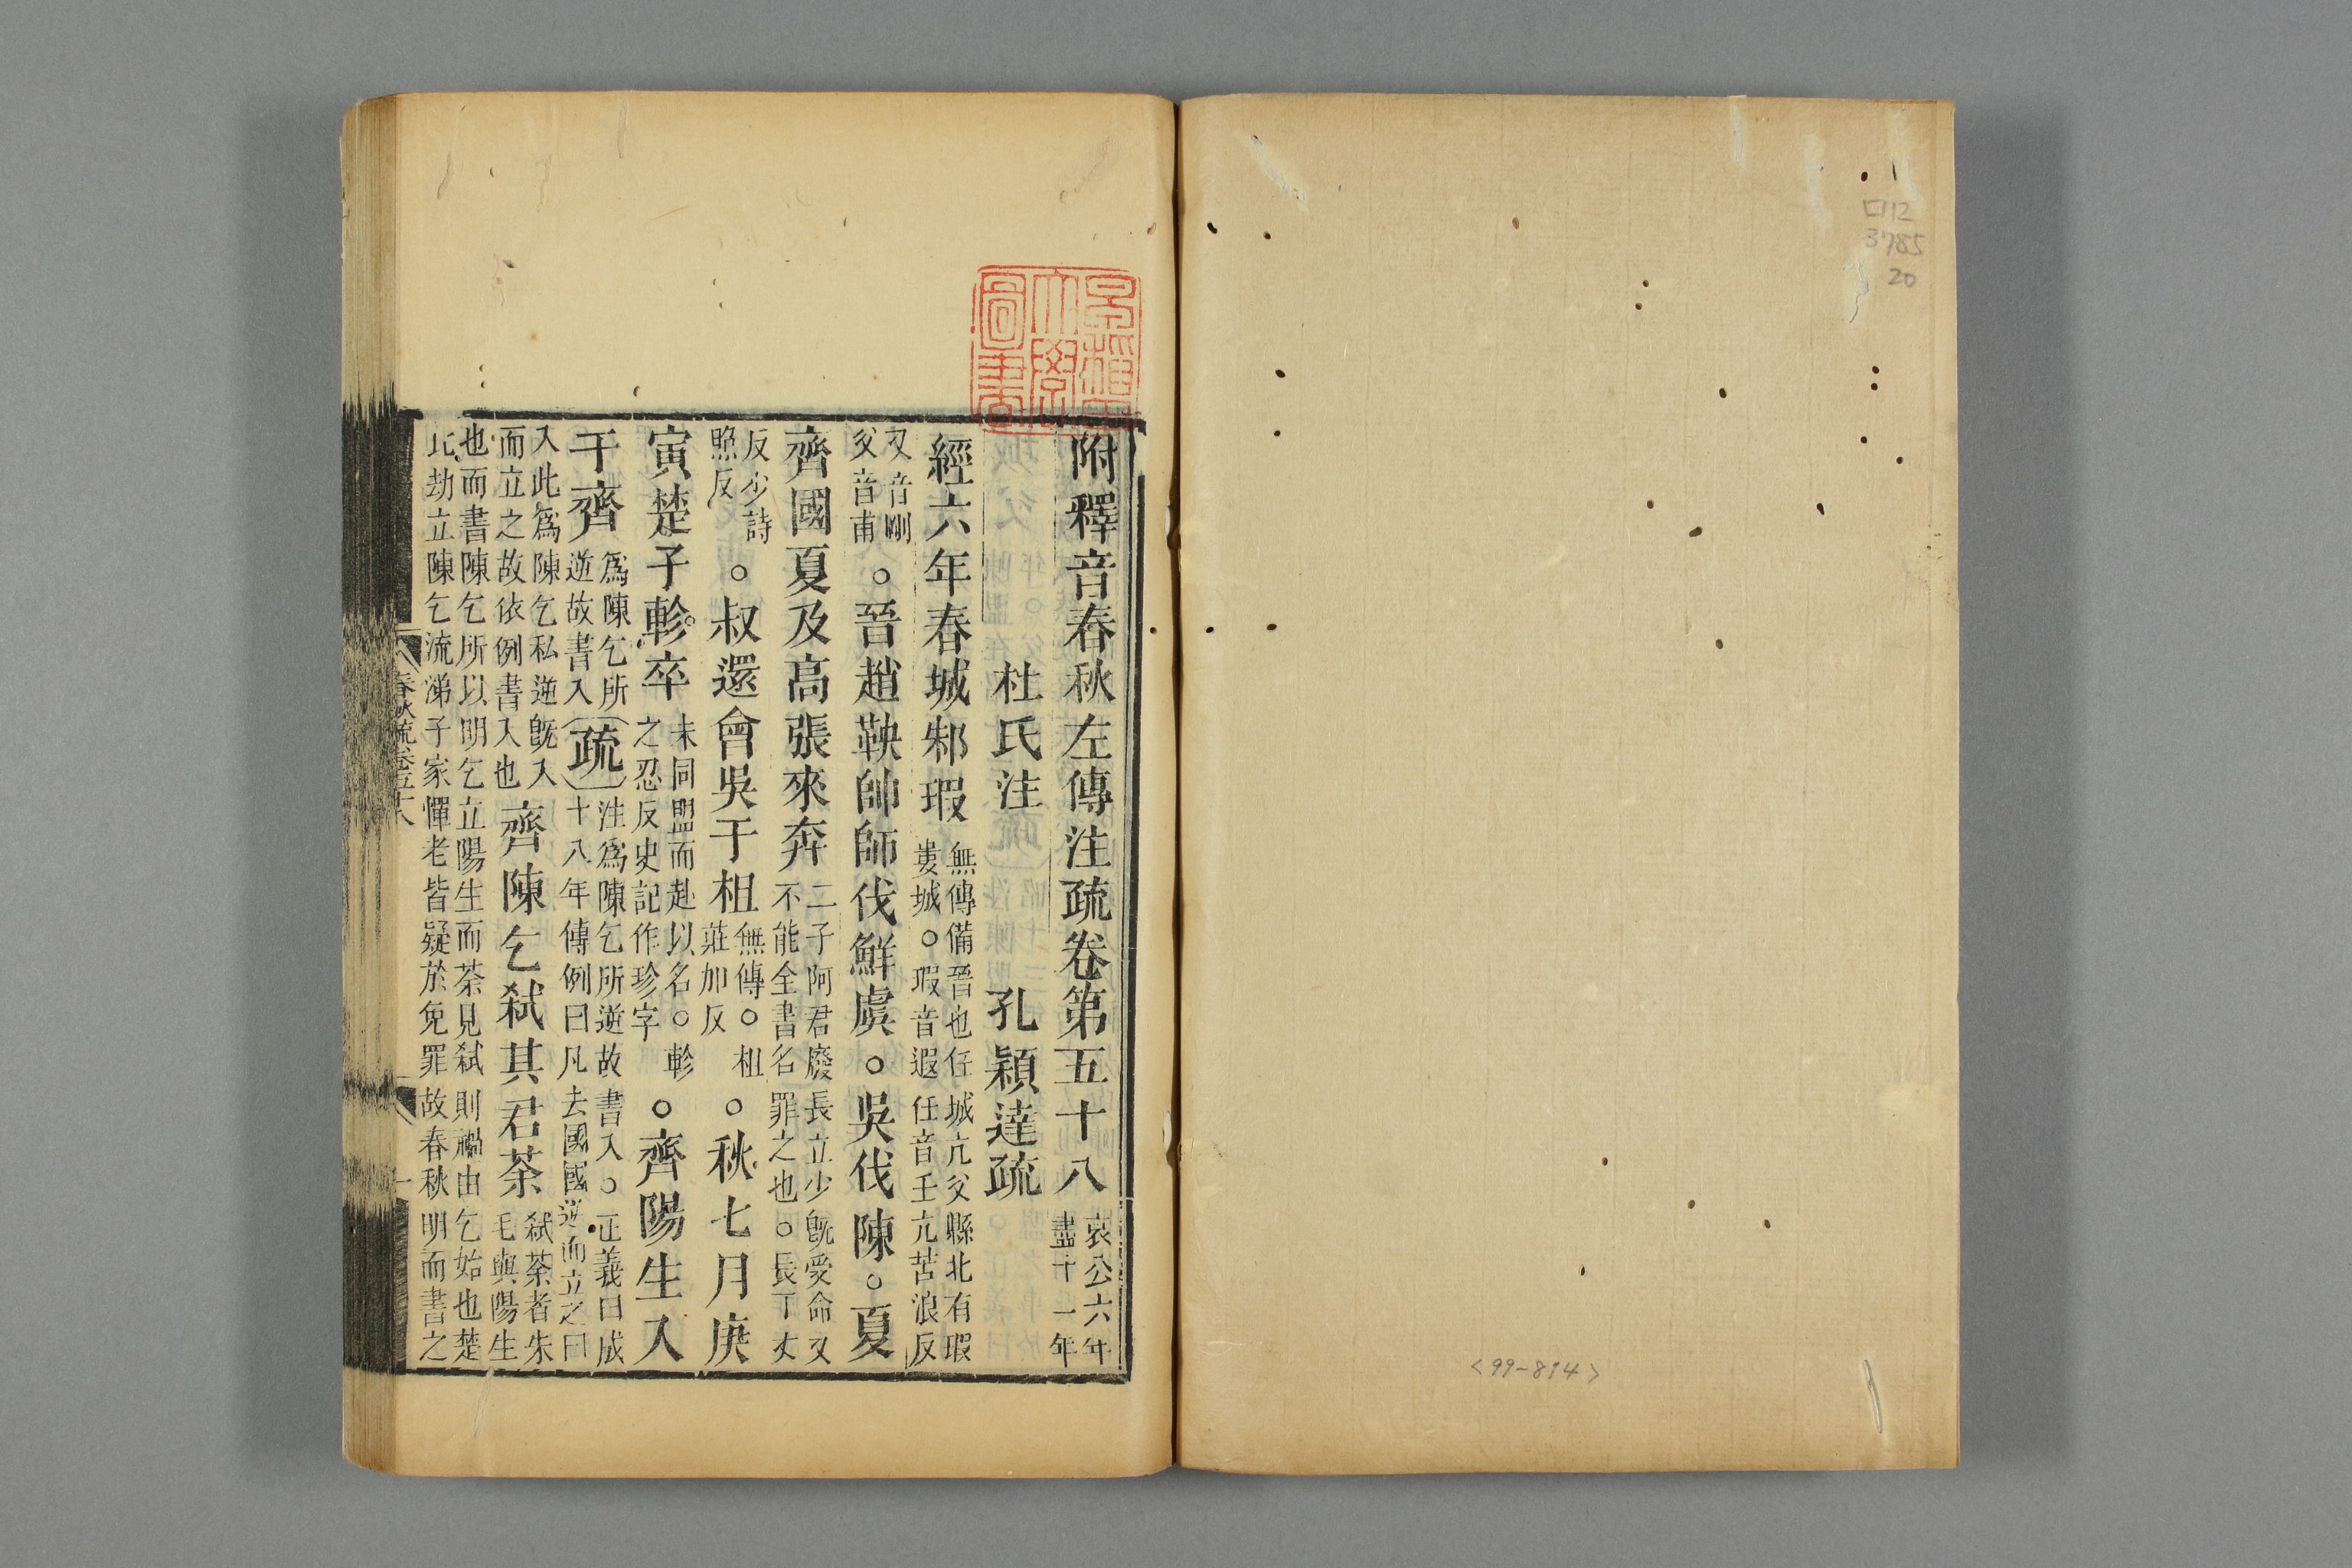 ロ12
3785
20
<99-814>
早稻田大學圖書
附釋音春秋左傳注疏卷第五十八 哀公六年盡十一年
杜氏注 孔穎達疏
經六年春城邾瑕 無傳備晉也任城亢父縣北有瑕婁城○瑕音遐任音壬亢苦浪反
又音剛父音甫 ○晉趙鞅帥師伐鮮虞○吳伐陳○夏
齊國夏及高張來奔 二子阿君廢長立少既受命又不能全書名罪之也○長丁丈
反少詩照反 ○叔還會吳于柤 無傳○柤莊加反 ○秋七月庚
寅楚子軫卒 未同盟而赴以名○軫之忍反史記作珍字 ○齊陽生入
于齊 爲陳乞所逆故書入 疏 注爲陳乞所逆故書入○正義曰成十八年傳例曰凡去國國逆而立之曰
入此爲陳乞私逆既入而立之故依例書入也 齊陳乞弒其君荼 弒荼者朱毛與陽生
也而書陳乞所以明乞立陽生而荼見弒則禍由乞始也楚比劫立陳乞流涕子家憚老皆疑於免罪故春秋明而書之
春秋疏卷五十八 一